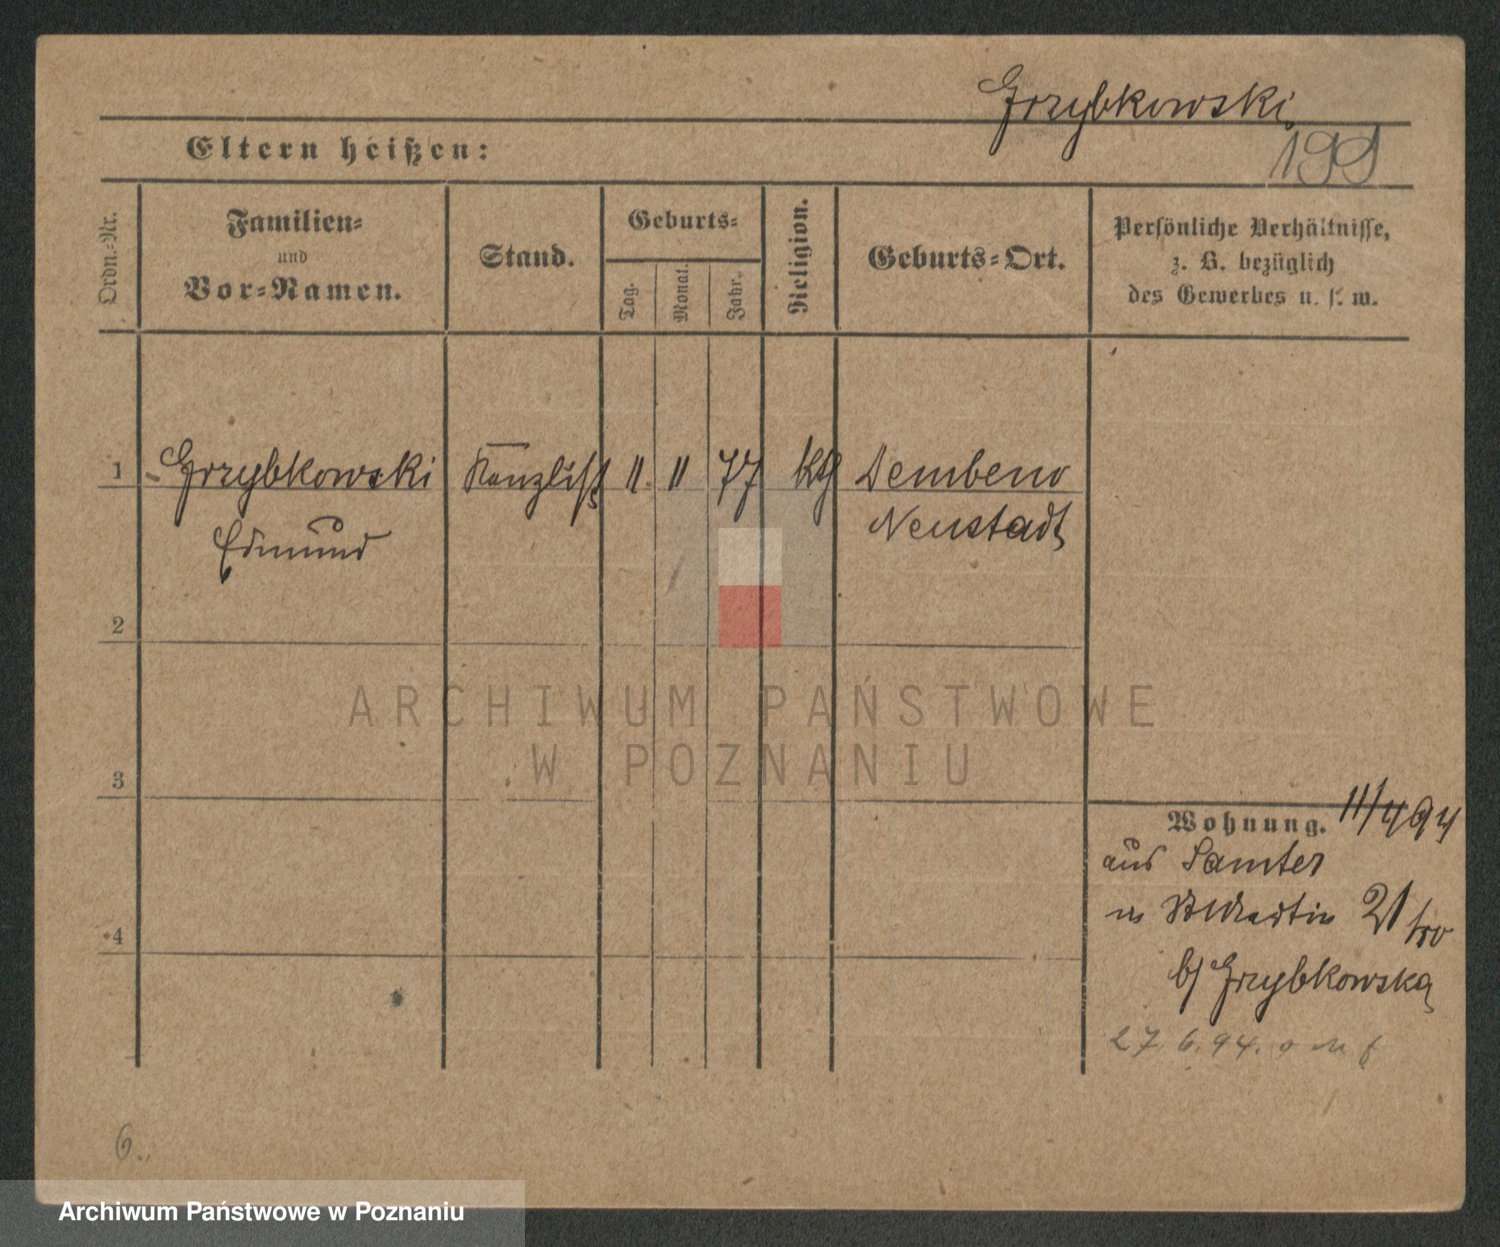 Grzybkowski
199
Eltern heißen:
Ordn.-Nr.
Familien-
und
Vor-Namen.
Stand.
Geburts-
Tag.
Monat.
Jahr.
Religion.
Geburts-Ort.
Persönliche Verhältnisse,
z. B. bezüglich
des Gewerbes u. s. w.
1 Grzybkowski Kanzlist 11. 11 77 kth Dembeno
Edmund Neustadt
2
3
4
Wohnung. 11/4 94
aus Samter
in St Martin 21
b/ Grzybkowska
27. 6. 94.
6.
ARCHIWUM PAŃSTWOWE
W POZNANIU
Archiwum Państwowe w Poznaniu